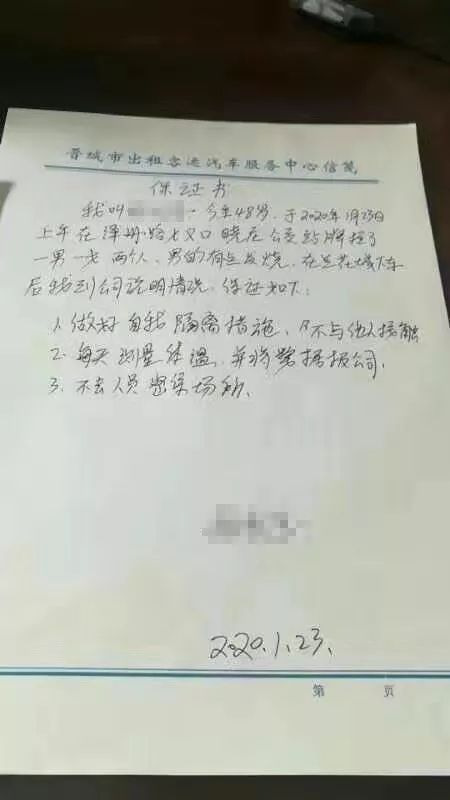 晋城市出租客运汽车服务中心信笺
保证书
我叫 今年48岁,于2020年1月23日
上午在泽州路七叉口晓庄公交站牌拉了
一男一女两个人,男的有点发烧,在兰花城下车
后我到公司说明情况,保证如下:
1.做好自我隔离措施,不与他人接触
2.每天测量体温,并将数据报公司.
3.不去人员密集场所.
2020.1.23.
第 页